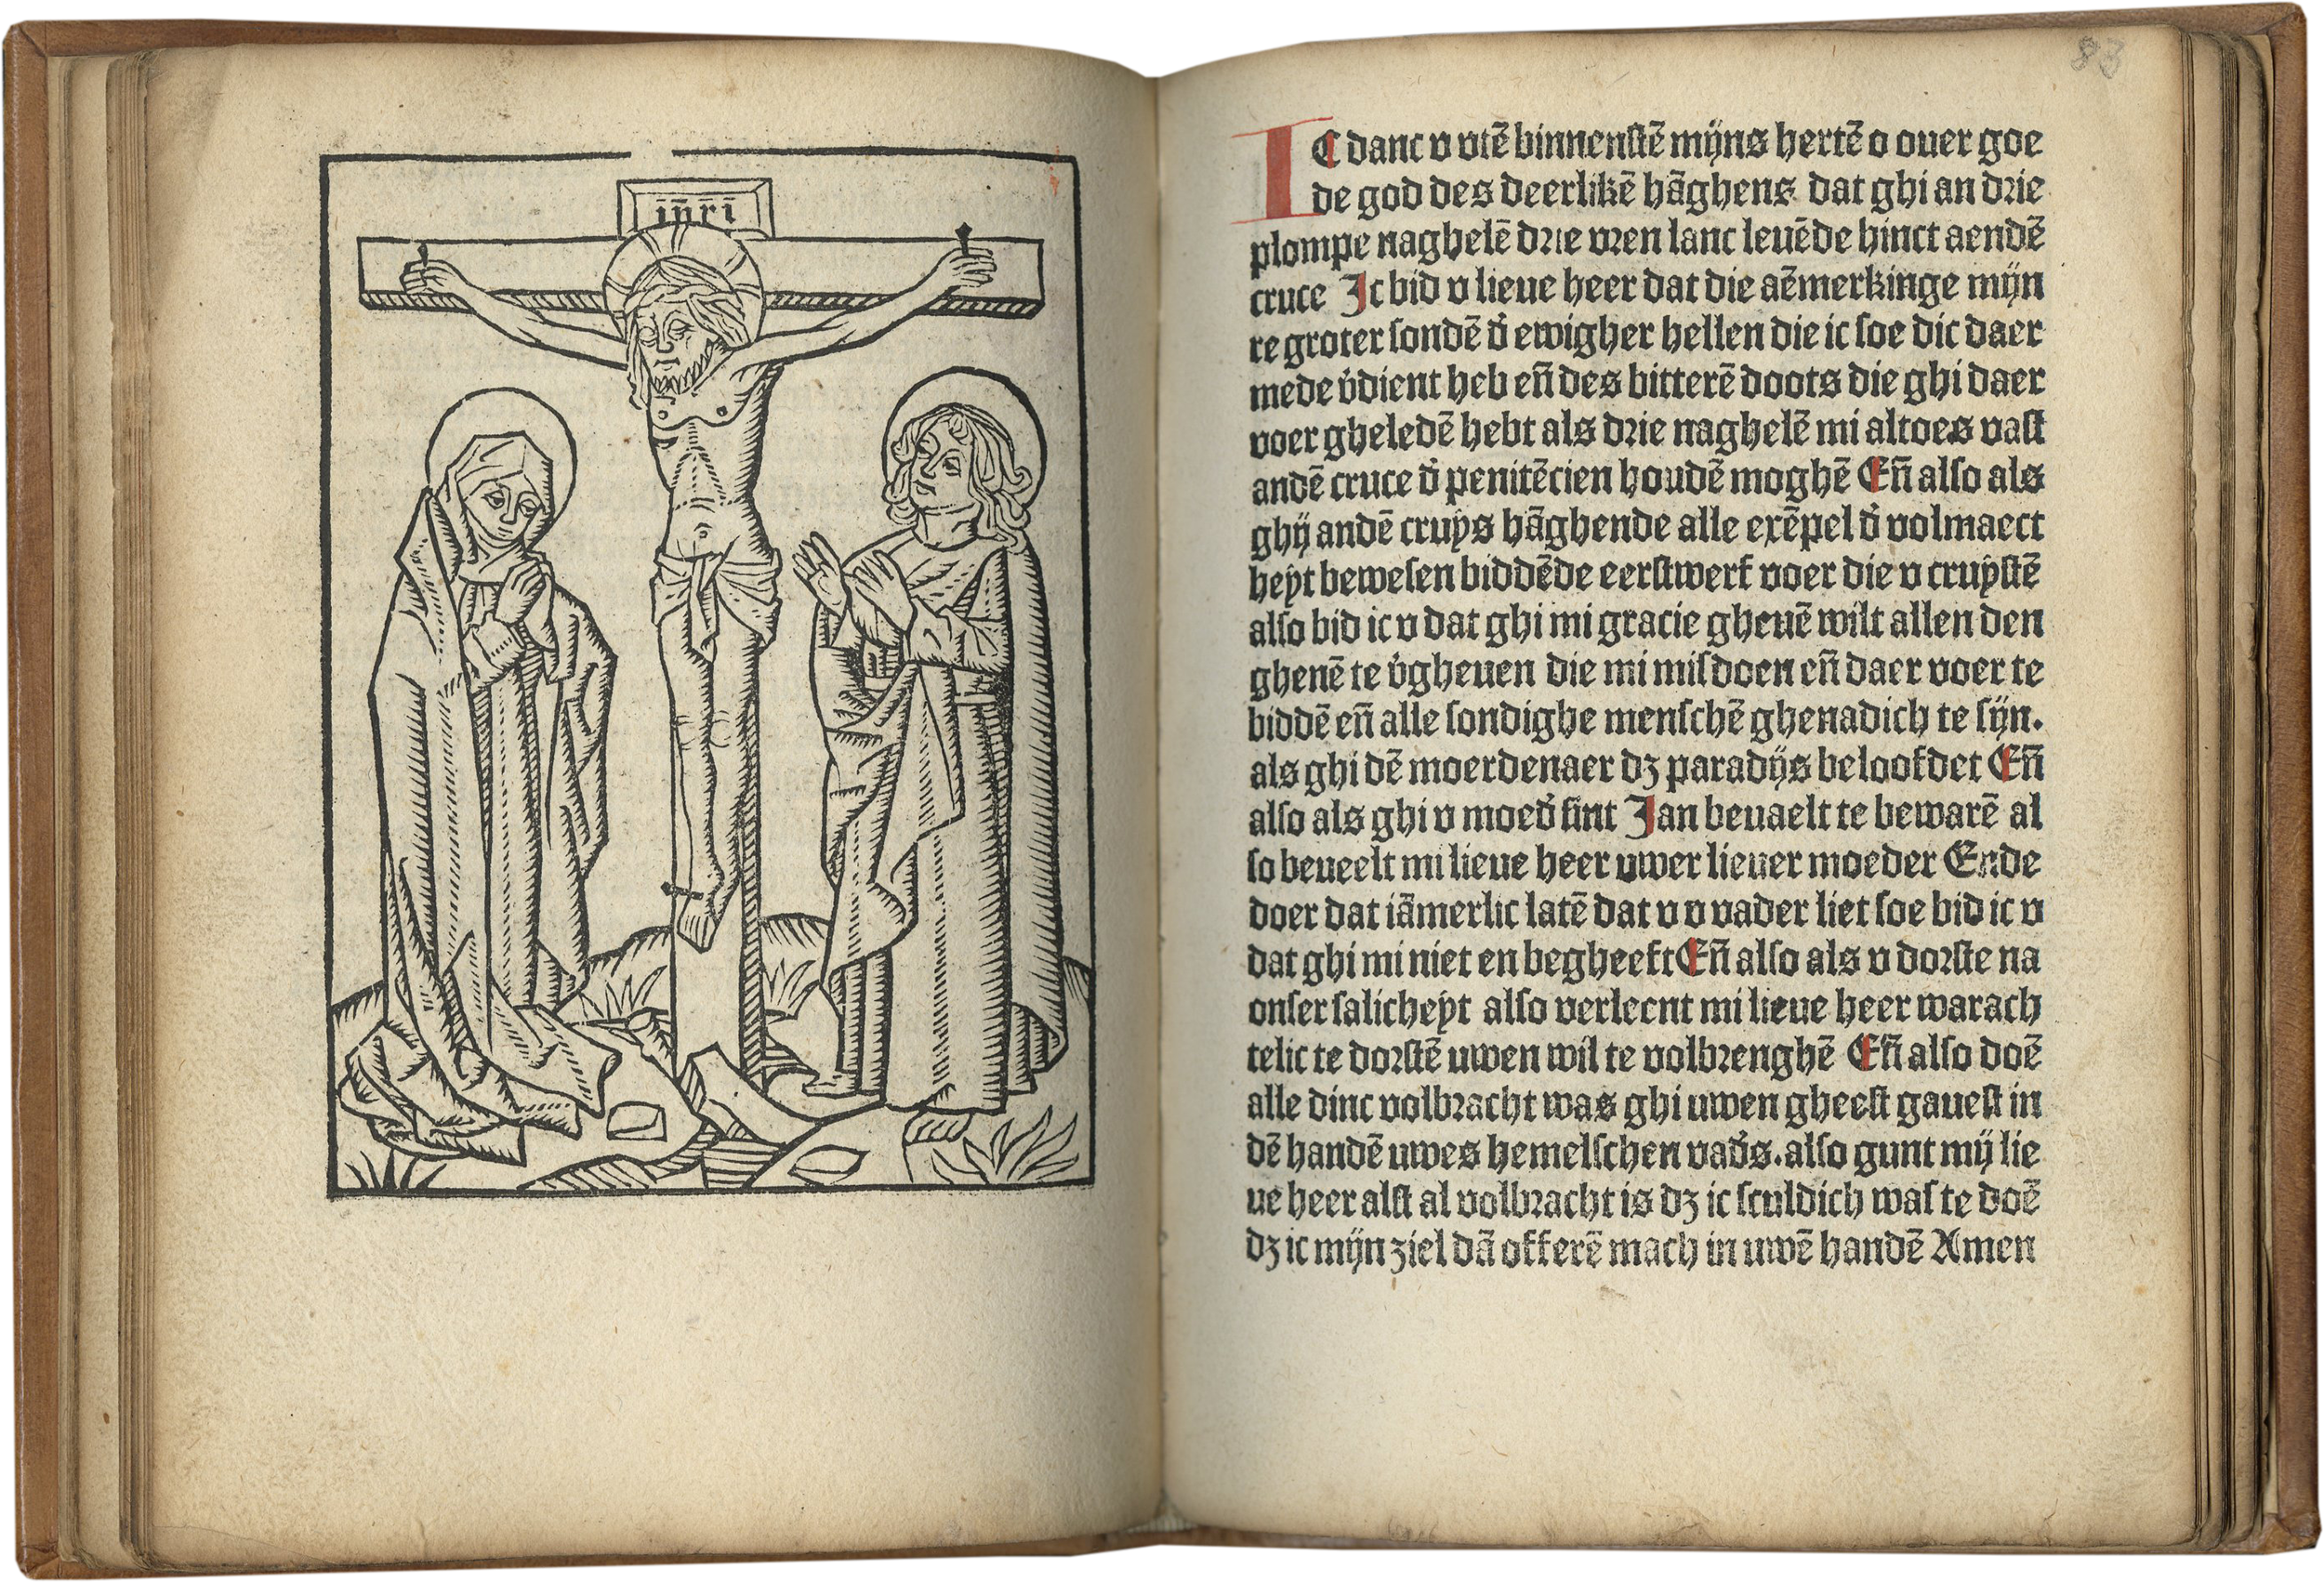 in̄ri
83
IC danc v vtē binnenstē mijns hertē o ouer goe
de god des deerlikē hāghens dat ghi an drie
plompe naghelē drie vren lanc leuēde hinct aendē
cruce Ic bid v lieue heer dat die aēmerkinge mijn
re groter sondē d̕ ewigher hellen die ic soe dic daer
mede v̕dient heb en̄ des bitterē doots die ghi daer
voer gheledē hebt als drie naghelē mi altoes vast
andē cruce d̕ penitēcien houdē moghē En̄ also als
ghij andē cruys hāghende alle exēpel d̕ volmaect
heyt bewesen biddēde eerstwerf voer die v cruystē
also bid ic v dat ghi mi gracie gheuē wilt allen den
ghenē te v̕gheuen die mi misdoen en̄ daer voer te
biddē en̄ alle sondighe menschē ghenadich te sijn.
als ghi dē moerdenaer dʒ paradijs beloofdet En̄
also als ghi v moed̕ sint Jan beuaelt te bewarē al
so beueelt mi lieue heer uwer lieuer moeder Ende
doer dat iāmerlic latē dat v v vader liet soe bid ic v
dat ghi mi niet en begheeft En̄ also als v dorste na
onser salicheyt also verleent mi lieue heer warach
telic te dorstē uwen wil te volbrenghē En̄ also doē
alle dinc volbracht was ghi uwen gheest gauest in
dē handē uwes hemelschen vad̕s. also gunt mij lie
ue heer alst al volbracht is dʒ ic sculdich was te doē
dʒ ic mijn ziel dā offerē mach in uwē handē Amen